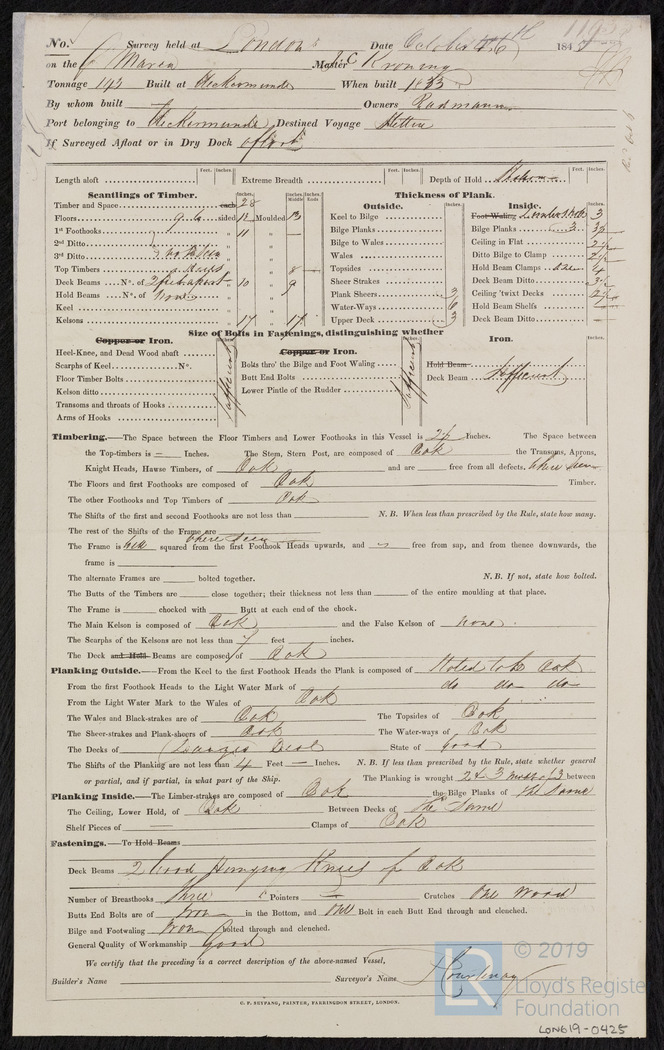 No. Survey held at London Date October 16th 184
on the Maria Master J C Kroning
Tonnage 193 Built at Ueckermunde When built 1835
By whom built — Owners Radmann
Port belonging to Ueckermunde Destined Voyage Stettin
If Surveyed Afloat or in Dry Dock afloat
Feet. Inches. Feet. Inches. Feet. Inches.
Length aloft Extreme Breadth Depth of Hold
Scantlings of Timber.
Inches. Inches. Middle Inches. Ends
Timber and Space each 28
Floors sided 11 Moulded 13
1st Foothooks 11 —
2nd Ditto
3rd Ditto
Top Timbers 8 —
Deck Beams No. of 10 9
Hold Beams No. of none
Keel
Kelsons 17 17
Thickness of Plank.
Outside. Inches.
Keel to Bilge
Bilge Planks
Bilge to Wales
Wales
Topsides
Sheer Strakes
Plank Sheers 3
Water-Ways 6
Upper Deck 3
Inside. Inches.
Foot Waling Limberstrk 3
Bilge Planks 3
Ceiling in Flat
Ditto Bilge to Clamp
Hold Beam Clamps 4
Deck Beam Ditto
Ceiling 'twixt Decks
Hold Beam Shelfs
Deck Beam Ditto
Size of Bolts in Fastenings, distinguishing whether
Copper or Iron. Inches.
Heel-Knee, and Dead Wood abaft
Scarphs of Keel No.
Floor Timber Bolts
Kelson ditto
Transoms and throats of Hooks
Arms of Hooks
Sufficient
Copper or Iron. Inches.
Bolts thro' the Bilge and Foot Waling
Butt End Bolts
Lower Pintle of the Rudder
Sufficient
Iron. Inches.
Hold Beam
Deck Beam Sufficient
Timbering.—The Space between the Floor Timbers and Lower Foothooks in this Vessel is 2½ Inches. The Space between
the Top-timbers is — Inches. The Stem, Stern Post, are composed of Oak the Transoms, Aprons,
Knight Heads, Hawse Timbers, of Oak and are free from all defects. Where seen
The Floors and first Foothooks are composed of Oak Timber.
The other Foothooks and Top Timbers of Oak
The Shifts of the first and second Foothooks are not less than N. B. When less than prescribed by the Rule, state how many.
The rest of the Shifts of the Frame are
Where seen
The Frame is well squared from the first Foothook Heads upwards, and free from sap, and from thence downwards, the
frame is
The alternate Frames are bolted together. N. B. If not, state how bolted.
The Butts of the Timbers are close together; their thickness not less than of the entire moulding at that place.
The Frame is chocked with Butt at each end of the chock.
The Main Kelson is composed of Oak and the False Kelson of none
The Scarphs of the Kelsons are not less than 7 feet inches.
The Deck and Hold Beams are composed of Oak
Planking Outside.—From the Keel to the first Foothook Heads the Plank is composed of Stated to be Oak
From the first Foothook Heads to the Light Water Mark of do do do
From the Light Water Mark to the Wales of Oak
The Wales and Black-strakes are of Oak The Topsides of Oak
The Sheer-strakes and Plank-sheers of Oak The Water-ways of Oak
The Decks of Danzig Deal State of good
The Shifts of the Planking are not less than 4 Feet — Inches. N. B. If less than prescribed by the Rule, state whether general
or partial, and if partial, in what part of the Ship. The Planking is wrought 2 & 3 between
Planking Inside.—The Limber-strakes are composed of Oak the Bilge Planks of the Same
The Ceiling, Lower Hold, of Oak Between Decks of the Same
Shelf Pieces of — Clamps of Oak
Fastenings.—To Hold Beams
Deck Beams 2 Wood Hanging Knees of Oak
Number of Breasthooks three Pointers — Crutches One Wood
Butts End Bolts are of Iron in the Bottom, and one Bolt in each Butt End through and clenched.
Bilge and Footwaling Iron bolted through and clenched.
General Quality of Workmanship Good
We certify that the preceding is a correct description of the above-named Vessel,
Builder's Name Surveyor's Name Courtenay
C. F. SEYFANG, PRINTER, FARRINGDON STREET, LONDON.
LR © 2019
Lloyd's Register
Foundation
LON619-0425